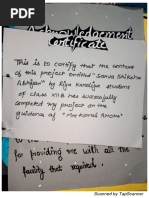 Acknowledgement
Certificate
This is to certify that the content
of this project entitled "Sarva Shiksha
Abhiyan" by Riya Kanaujiya students
of class XII B has successfully
completed my project on the
guidance of "
for providing me with all the
facility that required.
Scanned by TapScanner